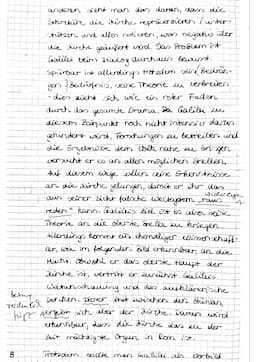 anderen sieht man das daran, dass die
Sekretäre die Kirche repräsentieren / unter-
stützen und alles notieren, was negativ über
die Kirche geäußert wird. Das Problem ist
Galilei beim Dialog durchaus bewusst.
Spürbar ist allerdings trotzdem sein (Bedrän-
gen) Bedürfnis, seine Theorie zu verbreiten
- dies zieht sich wie ein roter Faden
durch das gesamte Drama. Da Galilei zu
diesem Zeitpunkt noch nicht intensiv daran
gehindert wird, Forschungen zu betreiben und
die Ergebnisse dem Volk nahe zu bringen,
versucht er es an allen möglichen Stellen.
Auf diesem Wege sollen seine Erkenntnisse
an die Kirche gelangen, damit er ihr das
aus seiner Sicht falsche Weltsystem "aus-
reden" kann. Galileis Ziel ist es also, seine
Theorie an die oberste Stelle zu bringen.
Allerdings kommt ein ehemaliger Wissenschaft-
ler, wie im folgenden Bild erkennbar, an die
Macht. Obwohl er das oberste Haupt der
Kirche ist, vertritt er zunächst Galileis
Weltanschauung und das aufklärerische
Denken. Dieser steht zwischen den Stühlen,
aber der Kirche. Daran wird
erkennbar, dass die Kirche das zu der
Zeit mächtigste Organ in Rom ist.
8 Trotzdem sollte man Galilei als Vorbild